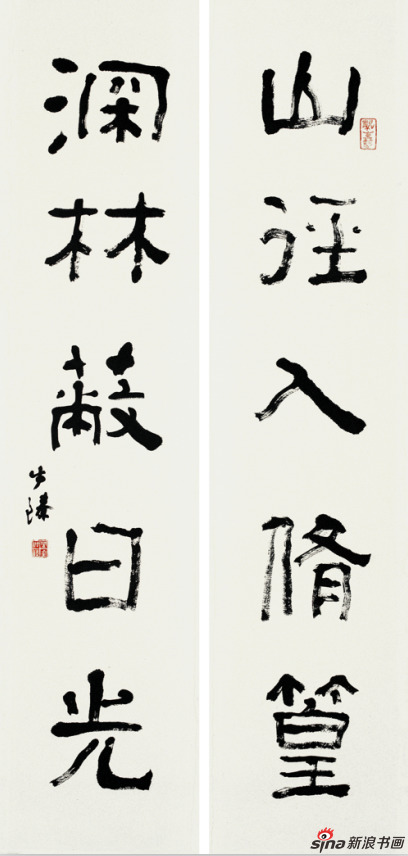 山径入脩篁
深林蔽日光
sina新浪书画